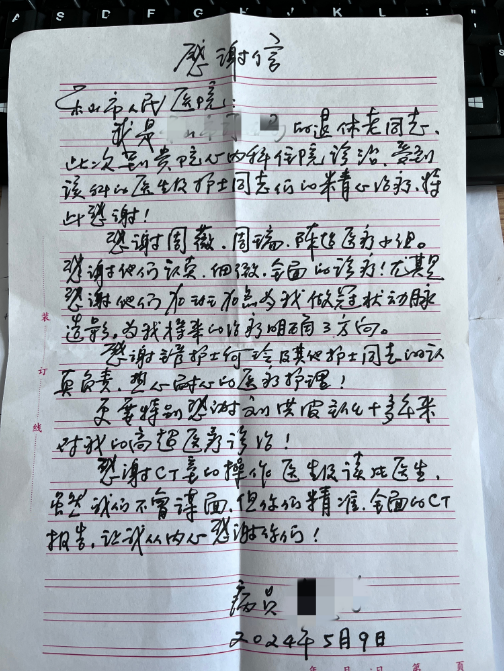 A S D F G H J K L
感谢信
乐山市人民医院:
我是 的退休老同志,
此次到贵院心内科住院诊治,受到
该科的医生及护士同志们的精心治疗,特
此感谢!
感谢周薇、周璃、陈 医疗小组。
感谢他们认真、细微、全面的诊疗!尤其是
感谢他们 为我做冠状动脉
造影,为我将来的治疗明确了方向。
感谢 护士何玲及其他护士同志的认
真负责、热心耐心的医疗护理!
更要特别感谢刘 主任十多年来
对我的高超医疗诊治!
感谢CT室的操作医生及读片医生,
虽然我们不曾谋面,但你们精准、全面的CT
报告,让我从内心感谢你们!
病员
2024年5月9日
装
订
线
年 月 日 第 頁